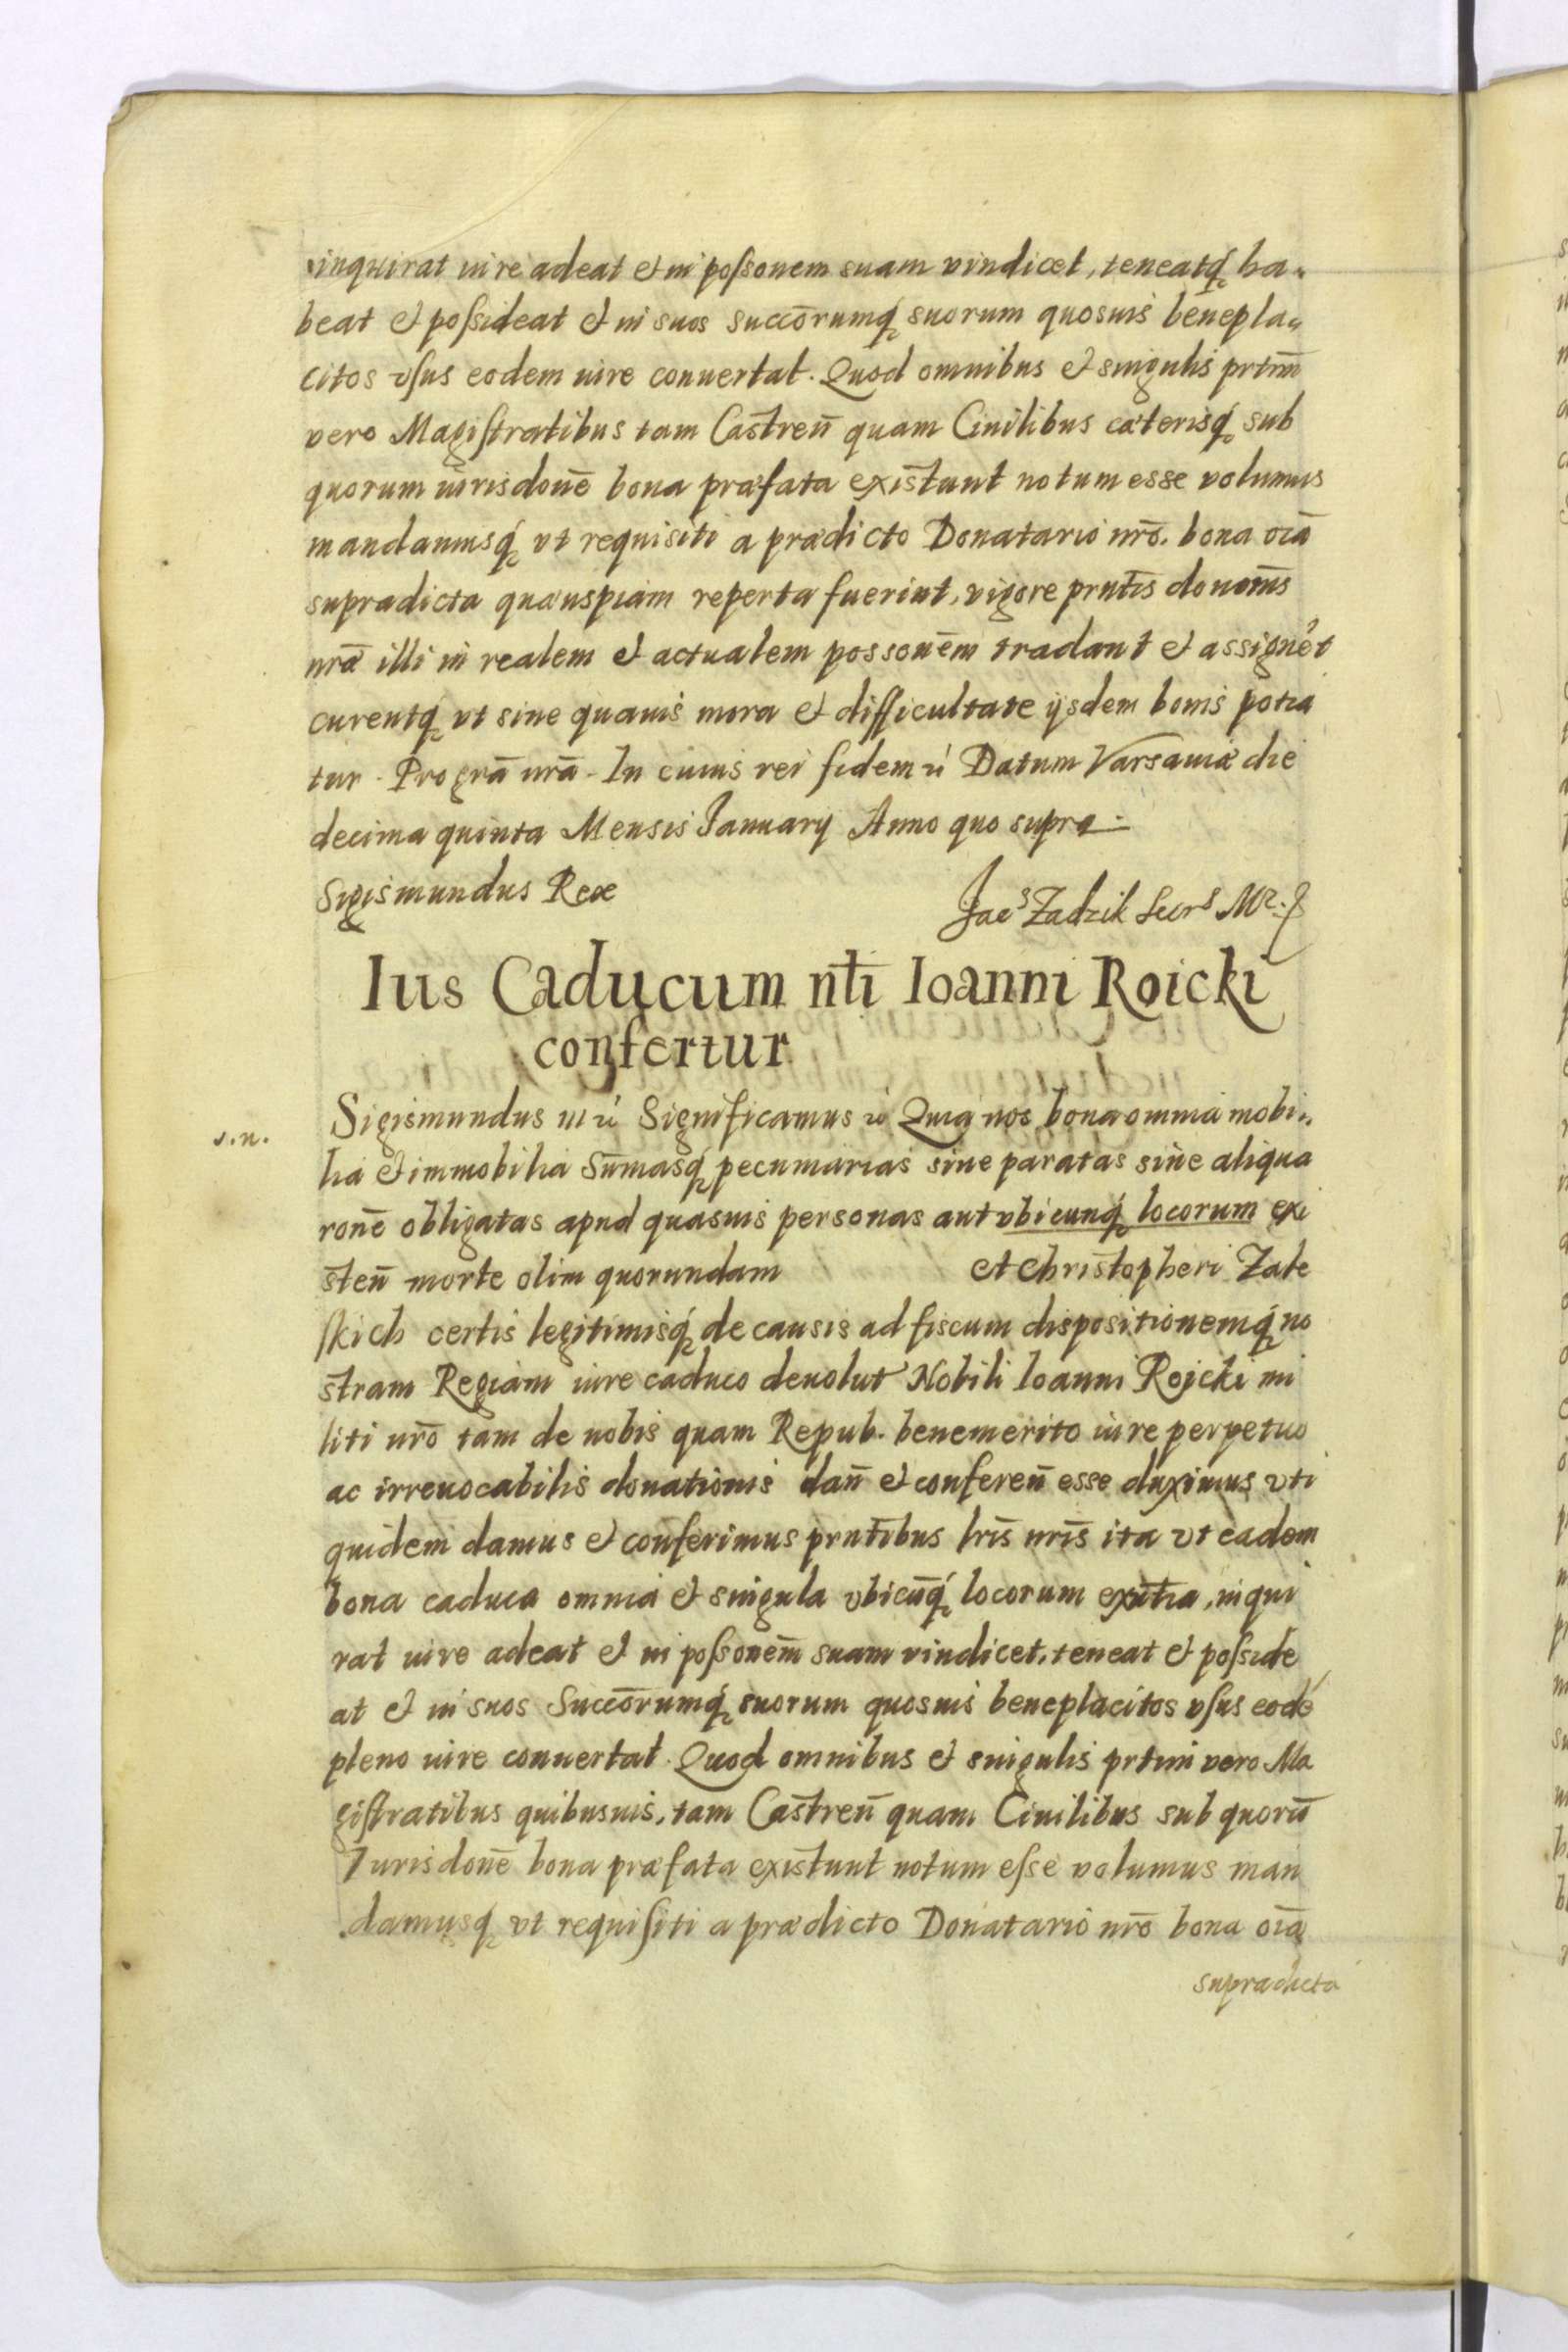 inquirat iure adeat et in poſsonem suam vindicet, teneatq́ ha-
beat et poſsideat et in suos succōrumq́ suorum quosuis benepla-
citos vſus eodem iure conuertat. Quod omnibus et singulis prtīm
vero Magiſtratibus tam Castren̄ quam Ciuilibus cæterisq́ sub
quorum iurisdonē bona præfata existunt notum esse volumus
mandamusq́ vt requisiti a prædicto Donatario nrō. bona oīa
supradicta quæuspiam reperta fuerint, vigore prntīs donōnis
nrǣ illi in realem et actualem possonēm tradant et assignēt
curentq́ vt sine quauis mora et difficultate ijsdem bonis potia
tur. Pro grā nrā. In cuius rei fidem ꝛc Datum Varsauiæ die
decima quinta Mensis Ianuarij Anno quo supra.
Sigismundus Rex
Jacs Zadzik Secrs Mᵗⁱˢ
Ius Caducum nti̅ Ioanni Roicki
confertur
s.n.
Sigismundus III ꝛc Significamus ꝛc Quia nos bona omnia mobi-
lia et immobilia Sum̄asq́ pecuniarias siue paratas siue aliqua
ronē obligatas apud quasuis personas aut vbicunq́ locorum exi
sten̄ morte olim quorundam et Christopheri Zale
ſkich certis legitimisq́ de causis ad fiscum dispositionemq́ no
stram Regiam iure caduco deuolut Nobili Ioanni Rojcki mi
liti nrō tam de nobis quam Repub. benemerito iure perpetuo
ac irreuocabilis donationis dan̄ et conferen̄ esse duximus vti
quidem damus et conferimus prntībus lrīs nrīs ita vt eadem
bona caduca omnia et singula vbicūq́ locorum exn̄tia, inqui
rat iure adeat et in poſsonem̄ suam vindicet, teneat et poſside
at et in suos Succōrumq́ suorum quosuis beneplacitos vſus eodē
pleno iure conuertat. Quod omnibus et singulis prtim vero Ma
giſtratibus quibusuis, tam Castren̄ quam Ciuilibus sub quorū
Iurisdonē bona præfata existunt notum eſse volumus man
damusq́ vt requiſiti a prædicto Donatario nrō bona oīa
supradicta